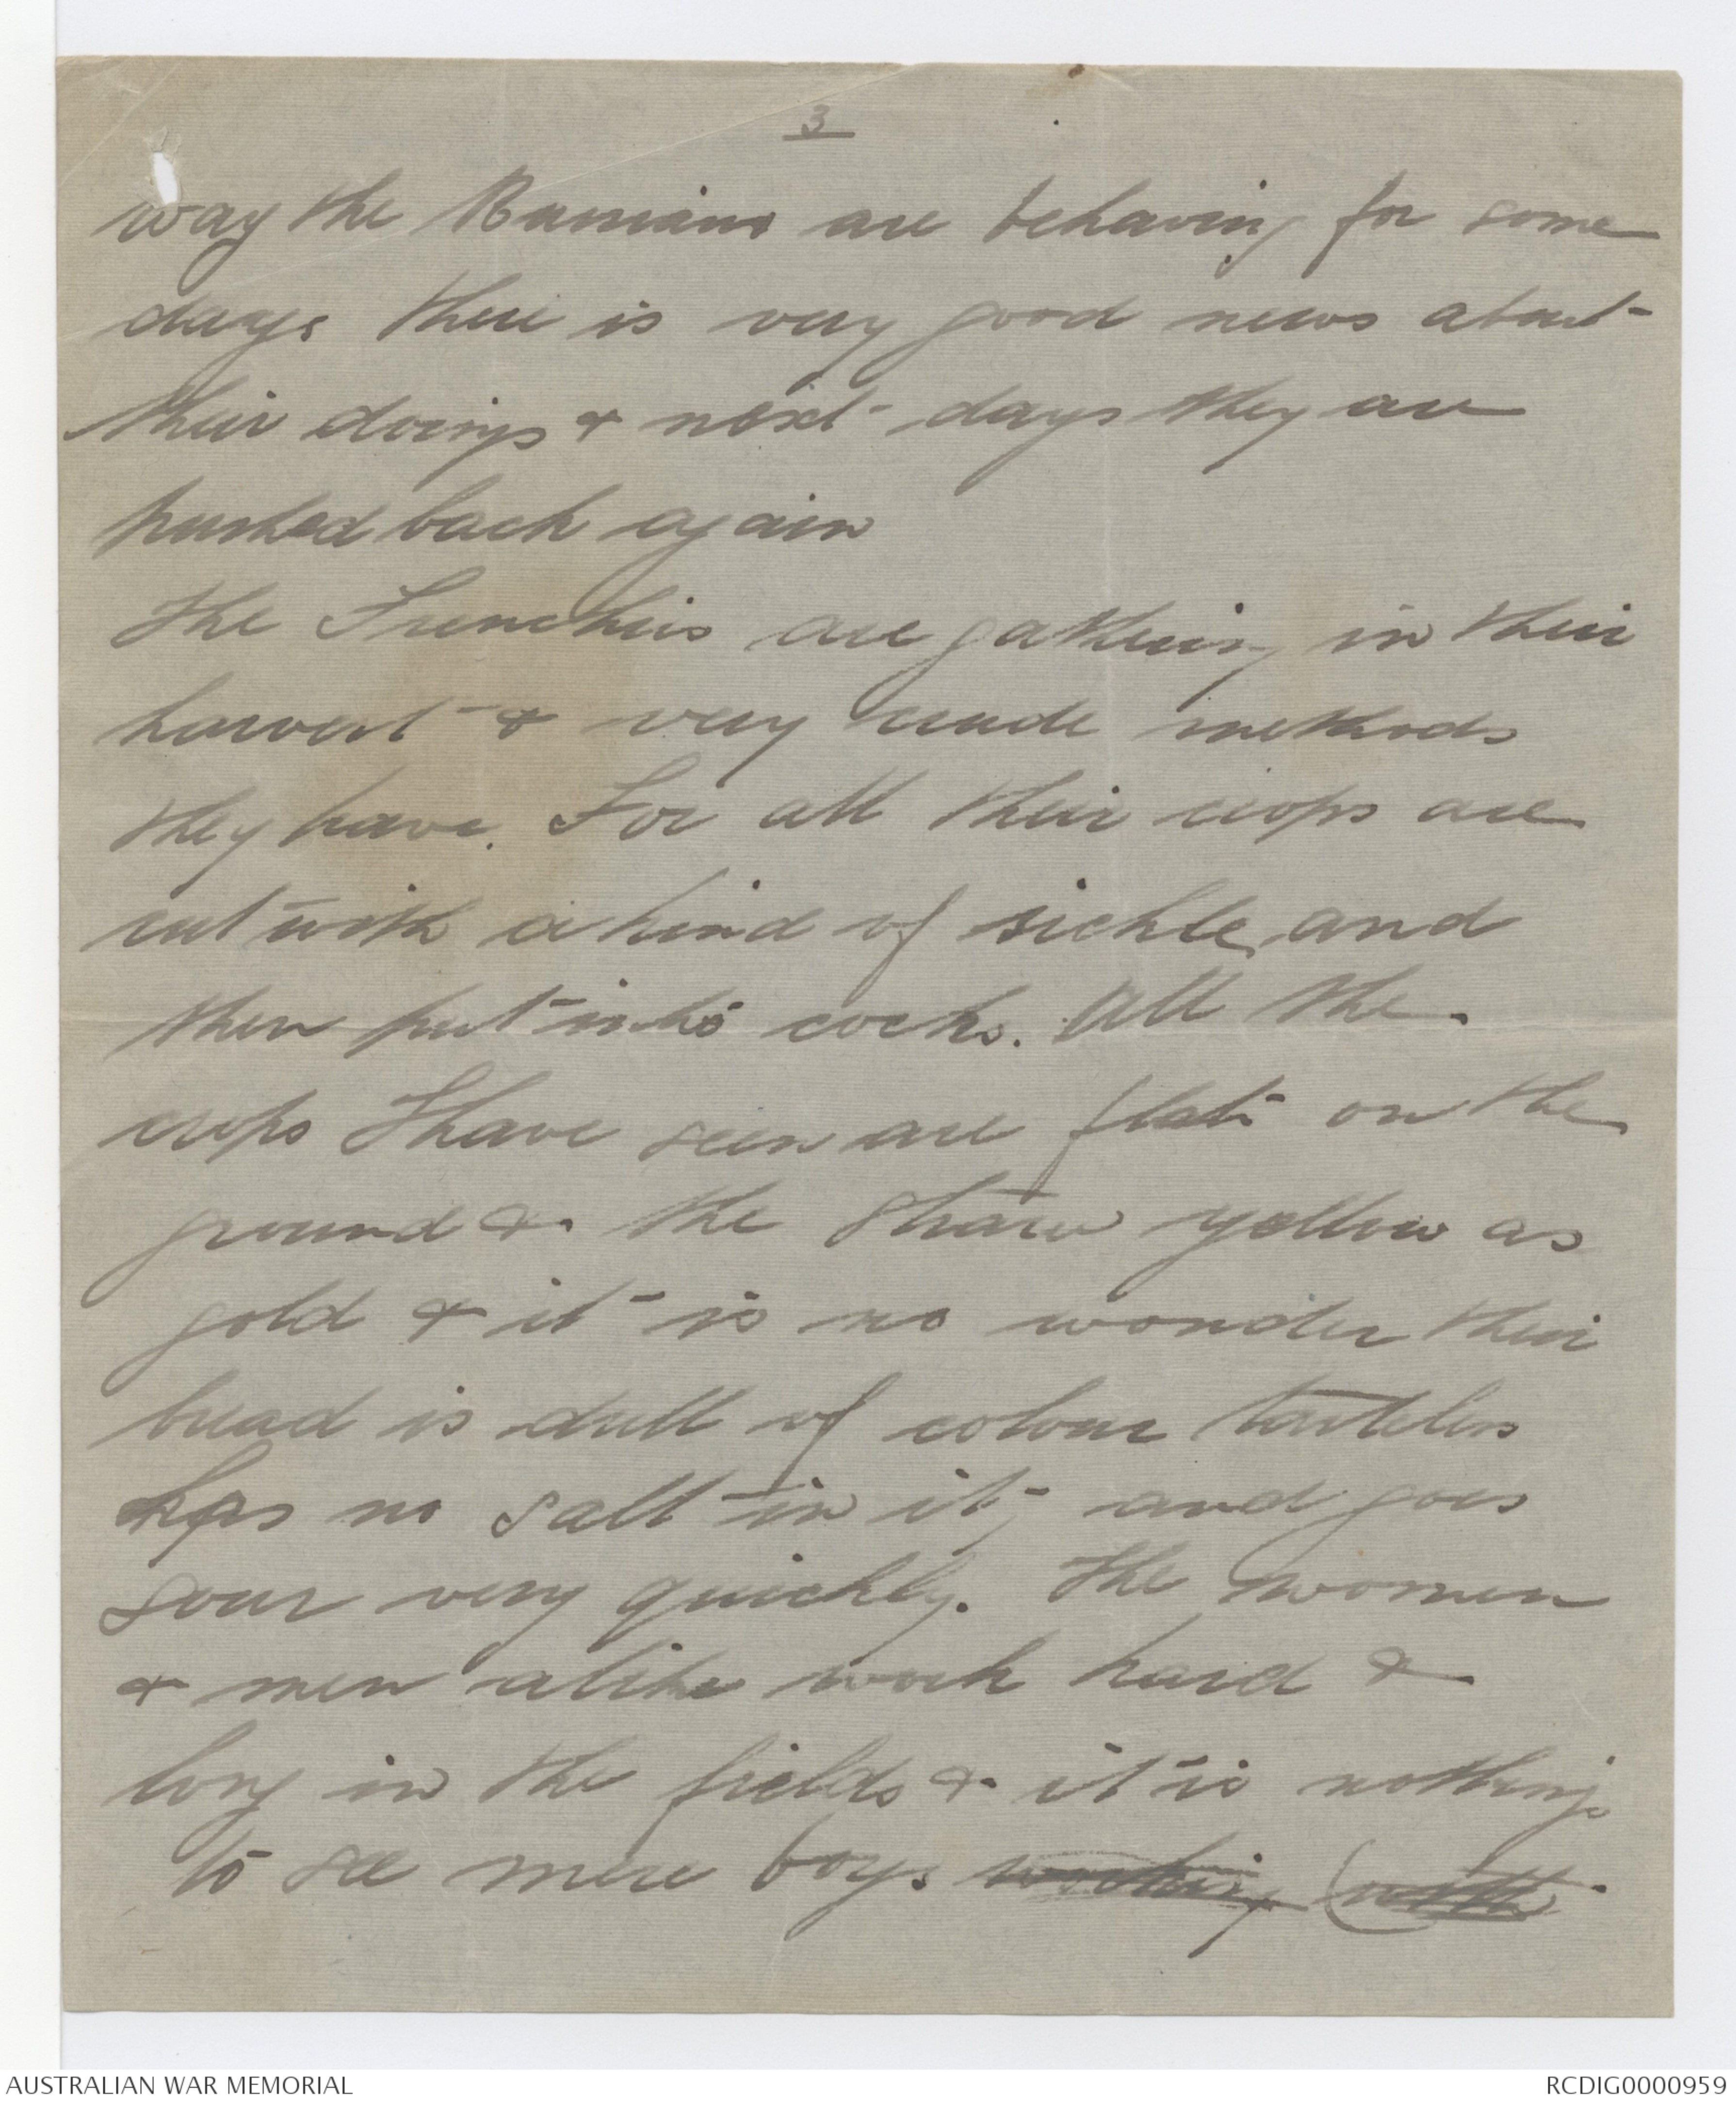 3
way the Russians are behaving for some
days there is very good news about
their doings & next days they are
pushed back again
The Frenchies are gathering in their
harvest & very crude methods
they have. For all their crops are
cut with a kind of sickle and
then put into cocks. All the
crops I have seen are flat on the
ground & the straw yellow as
gold & it is no wonder their
bread is dull of colour tasteless
has no salt in it, and goes
sour very quickly. The women
& men alike work hard &
long in the fields & it is nothing
to see mere boys working (with
AUSTRALIAN WAR MEMORIAL
RCDIG0000959